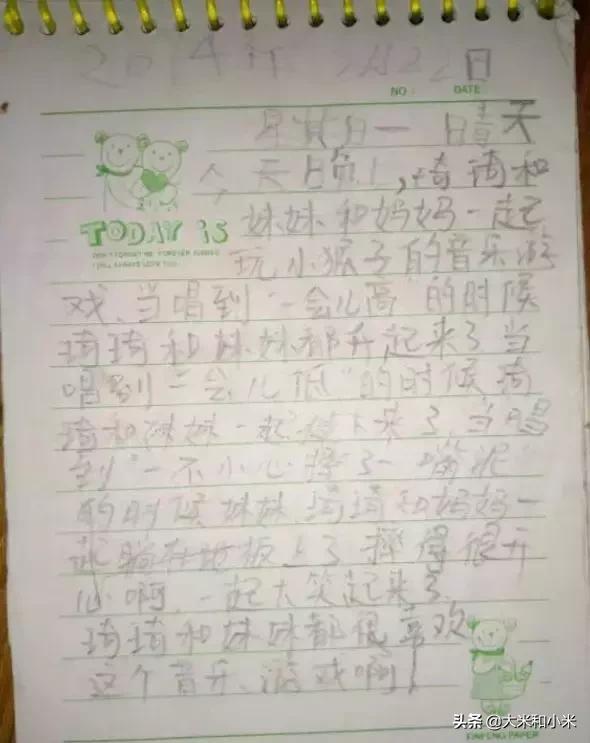 2014年 2月22日
NO:
DATE
星期日一 晴天
TODAY iS
今天上领,琦琦和
妹妹和妈妈一起
玩小猴子的音乐游
戏、当唱到“一会儿高”的时候
琦琦和妹妹都升起来了当
唱到“一会儿低”的时候琦
琦和妹妹一起蹲下来了,当唱
到“一不小心摔了一嘴泥”
的时候妹妹、琦琦和妈妈一
起躺在地板上了摔得很开
心啊,一起大笑起来了
琦琦和妹妹都很喜欢
这个音乐、游戏啊!
头条 @大米和小米
XINFENG PAPER